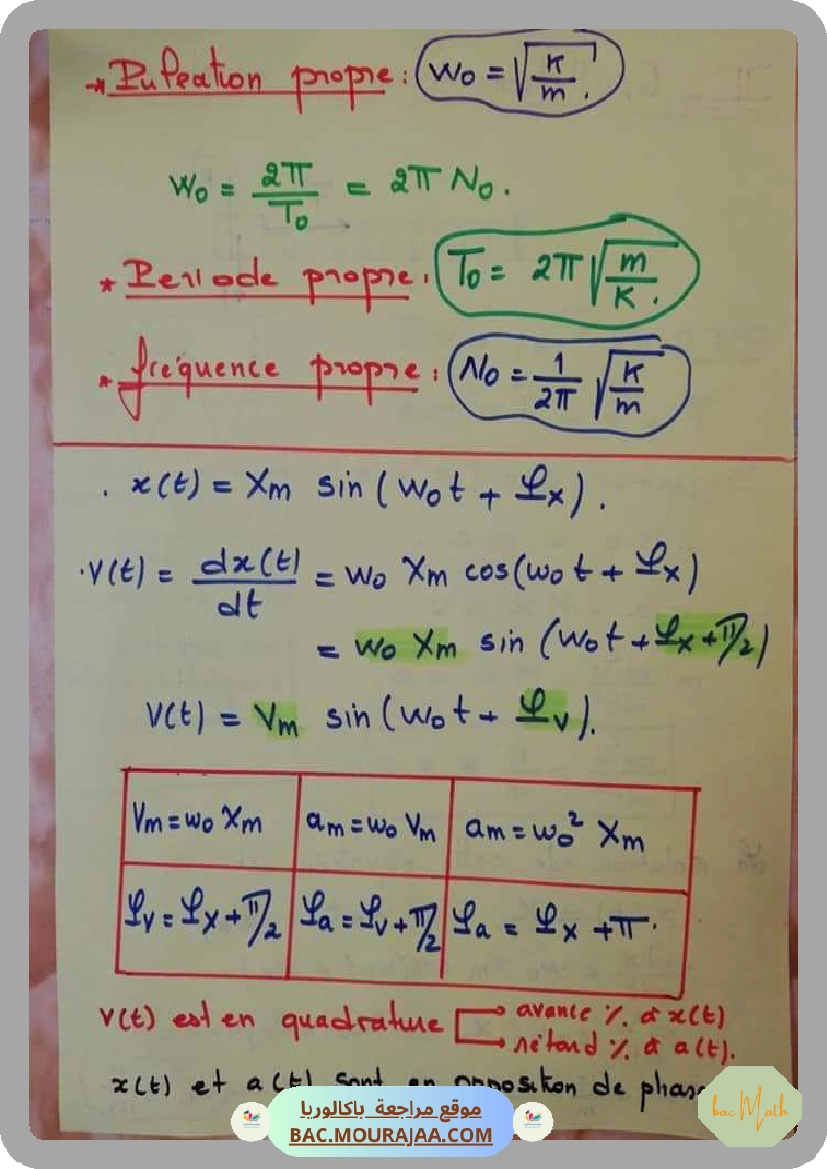 * Pulsation propre : W₀ = √(K/m).
W₀ = 2π/T₀ = 2π N₀.
* Periode propre : T₀ = 2π √(m/K).
* fréquence propre : N₀ = 1/2π √(K/m)
. x(t) = Xm sin (W₀t + φx).
. V(t) = dx(t)/dt = W₀ Xm cos(W₀t + φx)
= W₀ Xm sin (W₀t + φx + π/2)
V(t) = Vm sin (W₀t + φv).
Vm = W₀ Xm am = W₀ Vm am = W₀² Xm
φv = φx + π/2 φa = φv + π/2 φa = φx + π.
V(t) est en quadrature → avance % à x(t)
→ rétard % à a(t).
x(t) et a(t) sont en opposition de phase
bac Math
موقع مراجعة باكالوريا
BAC.MOURAJAA.COM